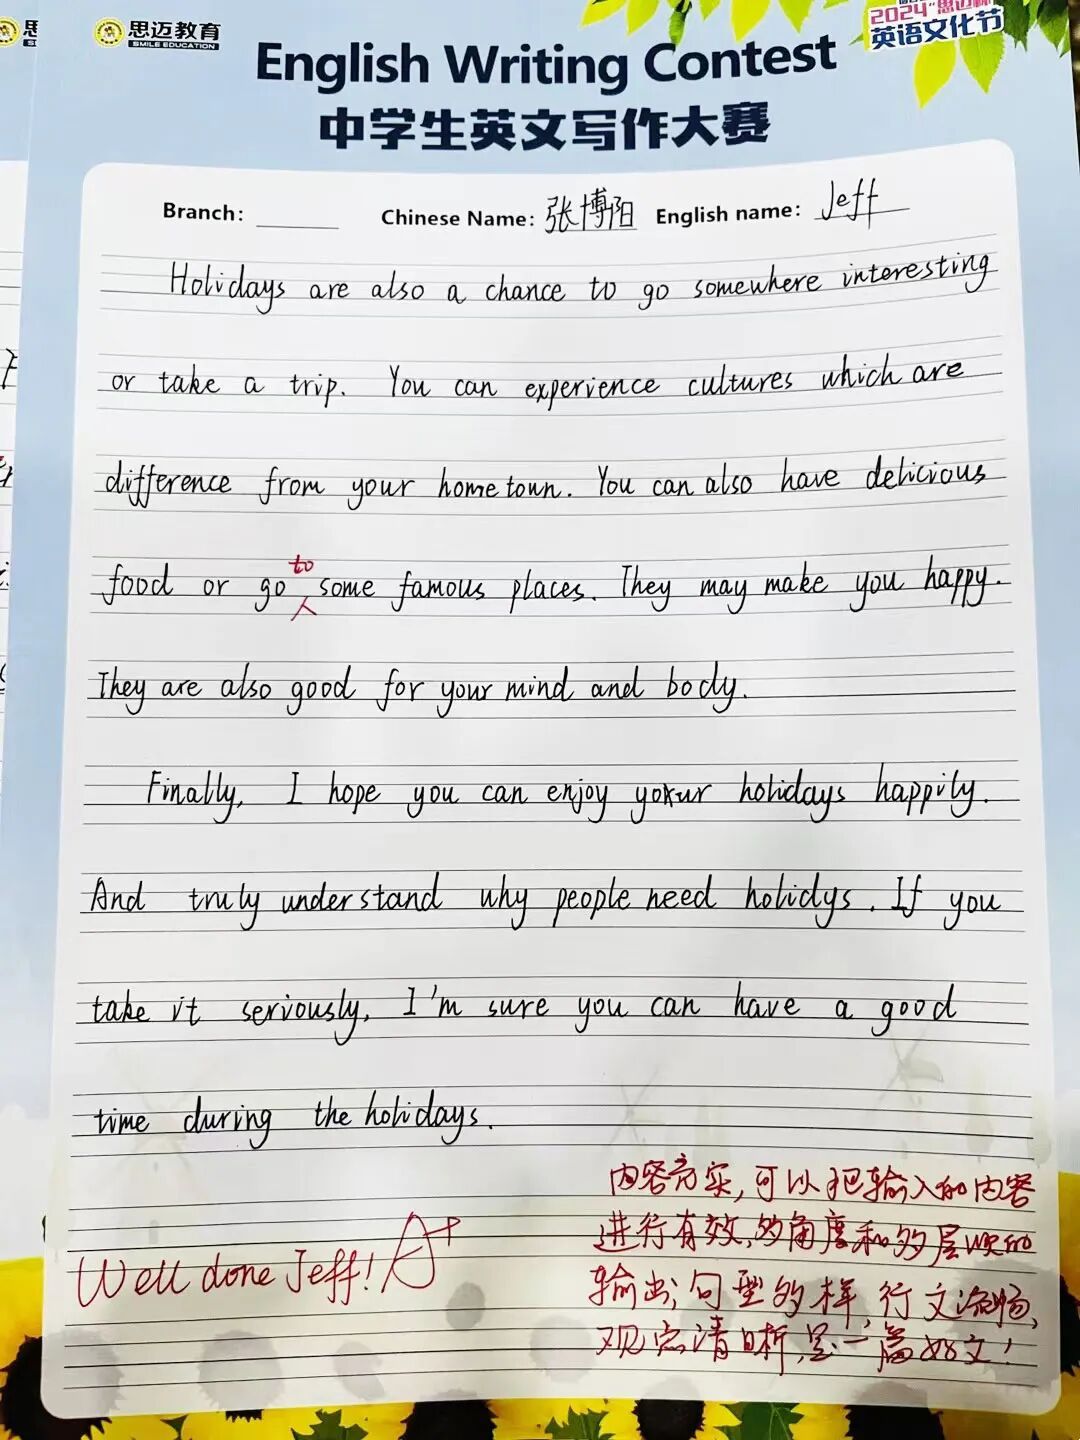 思迈教育
SMILE EDUCATION
2024"思迈杯"
英语文化节
English Writing Contest
中学生英文写作大赛
Branch: Chinese Name: 张博阳 English name: Jeff
Holidays are also a chance to go somewhere interesting
or take a trip. You can experience cultures which are
difference from your hometown. You can also have delicious
food or go to some famous places. They may make you happy.
They are also good for your mind and body.
Finally, I hope you can enjoy your holidays happily.
And truly understand why people need holidys. If you
take it seriously, I'm sure you can have a good
time during the holidays.
内容充实,可以把输入的内容
进行有效,多角度和多层次的
输出;句型多样,行文流畅,
观点清晰,是一篇好文!
Well done Jeff! A+